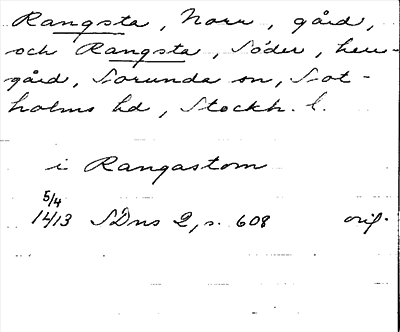 Rangsta, Norr, gård,
och Rangsta, Söder, herr-
gård, Sorunda sn, Sot-
holms hd, Stockh. l.
i Rangastom
5/4
1413 SDns 2, s. 608 orig.